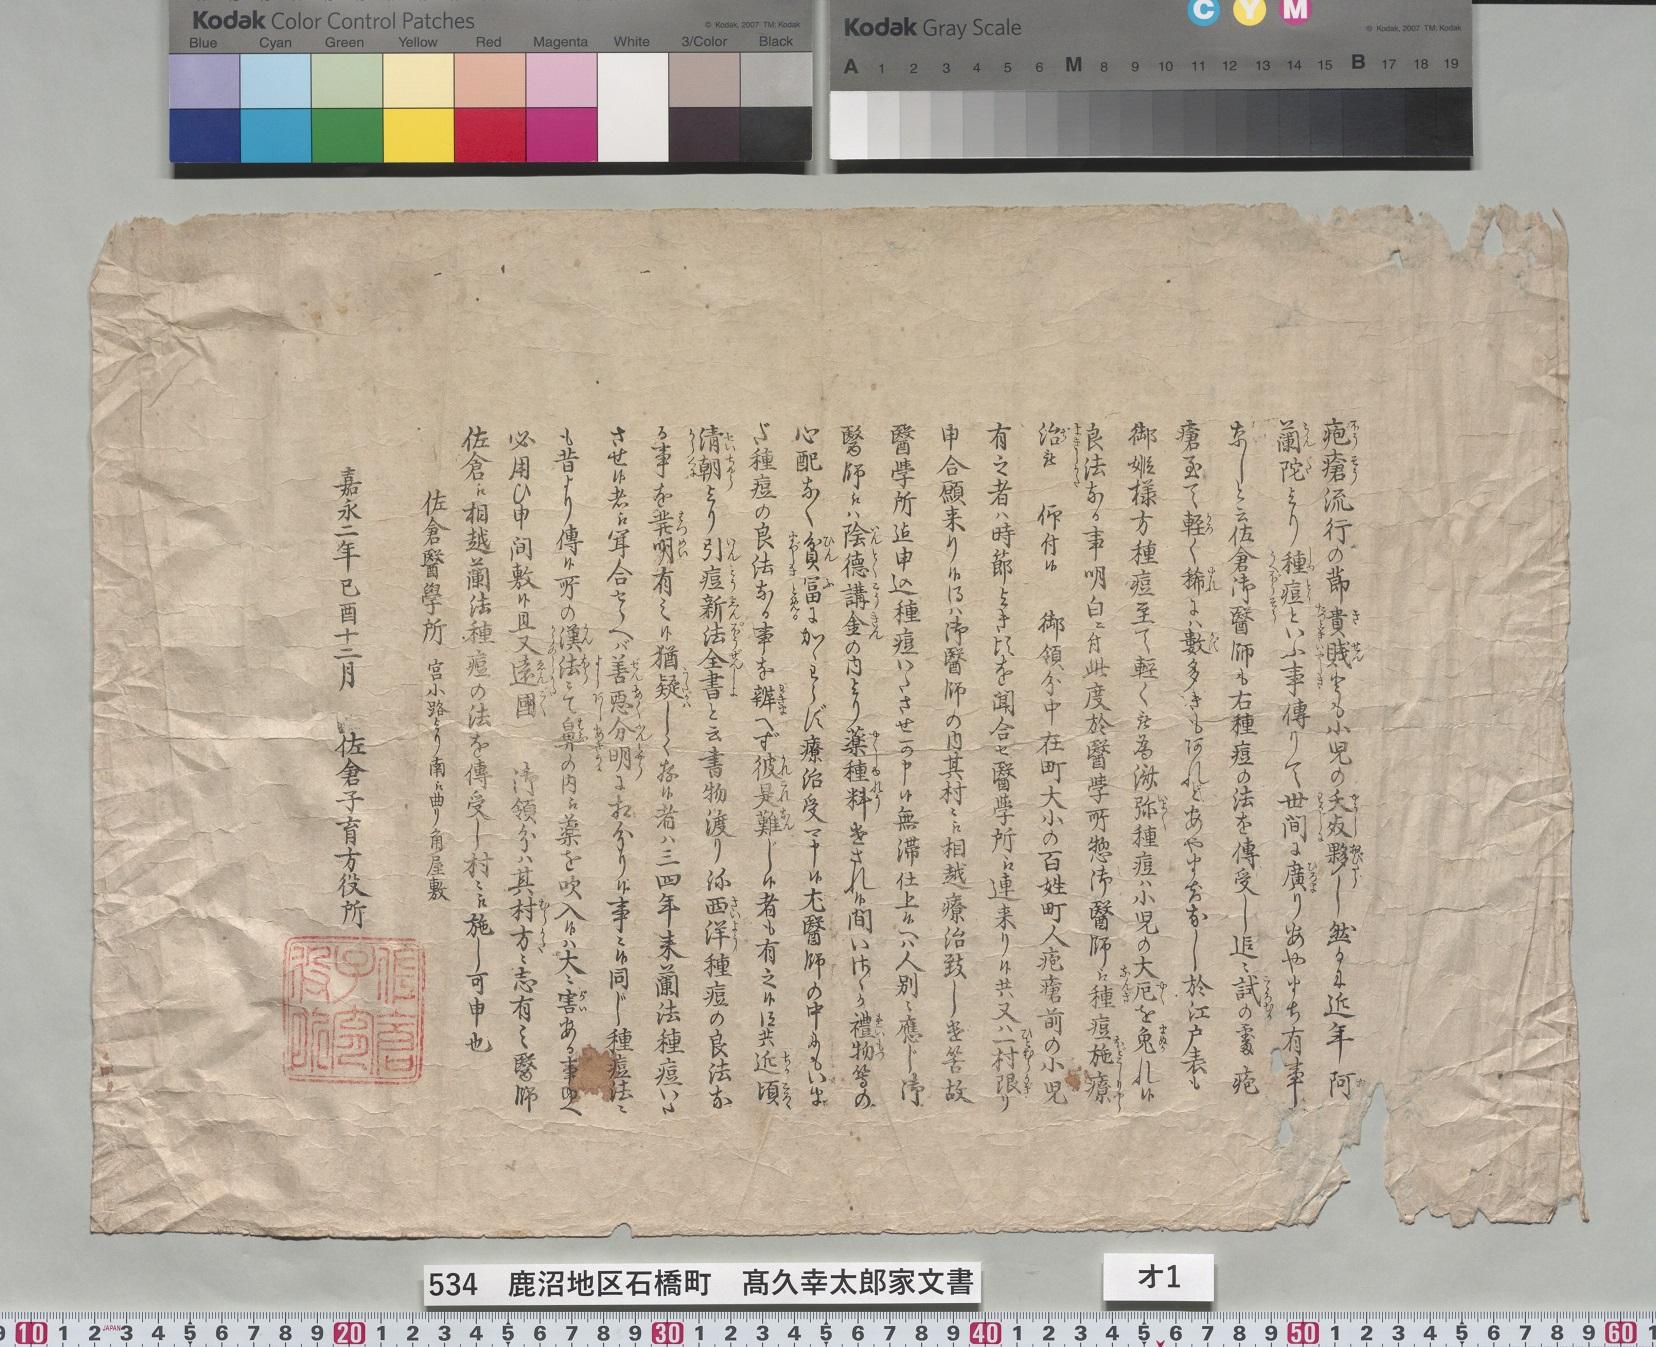 Kodak Color Control Patches
© Kodak, 2007 TM: Kodak
Blue Cyan Green Yellow Red Magenta White 3/Color Black
Kodak Gray Scale
C Y M
© Kodak, 2007 TM: Kodak
A 1 2 3 4 5 6 M 8 9 10 11 12 13 14 15 B 17 18 19
疱瘡流行の節貴賎とも小児の夭歿夥し然るに近年阿
蘭陀より種痘といふ事傳りて世間に廣りあやまち有事
なしと云佐倉御醫師も右種痘の法を傳受し追々試の處疱
瘡至て軽く稀には數多きも阿れどあやまちなし於江戸表も
御姫様方種痘至て軽く被為濟弥種痘ハ小児の大厄を免れ候
良法なる事明白ニ付此度於醫學所惣御醫師江種痘施療
治被 仰付候 御領分中在町大小の百姓町人疱瘡前の小児
有之者ハ時節よき頃を聞合セ醫學所江連来り候共又ハ一村限り
申合願来り候得ハ御醫師の内其村々江相越療治致し遣筈故
醫學所迄申込種痘いたさせ可申候無滞仕上候ヘハ人別ニ應じ御
醫師江ハ陰德講金の内より薬種料遣され候間いさゝか禮物等の
心配なく貧冨にかゝわらず療治受可申候尤醫師の中にもいま
だ種痘の良法なる事を辨へず彼是難じ候者も有之候得共近頃
清朝より引痘新法全書と云書物渡り弥西洋種痘の良法な
る事を発明有之候猶疑しく存候者ハ三四年来蘭法種痘いた
させ候者江聞合せらべハ善悪分明に相分り候事ニ候同じ種痘法ニ
も昔より傳候所の漢法にて鼻の内江薬を吹入候ハ大ニ害ある事ゆへ
必用ひ申間敷候且又遠國 御領分ハ其村方ニ志有之醫師
佐倉江相越蘭法種痘の法を傳受し村々江施し可申也
佐倉醫學所 宮小路より南江曲り角屋敷
嘉永二年己酉十二月 佐倉子育方役所
534 鹿沼地区石橋町 髙久幸太郎家文書
オ1
9 10 1 2 3 4 5 6 7 8 9 20 1 2 3 4 5 6 7 8 9 30 1 2 3 4 5 6 7 8 9 40 1 2 3 4 5 6 7 8 9 50 1 2 3 4 5 6 7 8 9 60 1
JAPAN